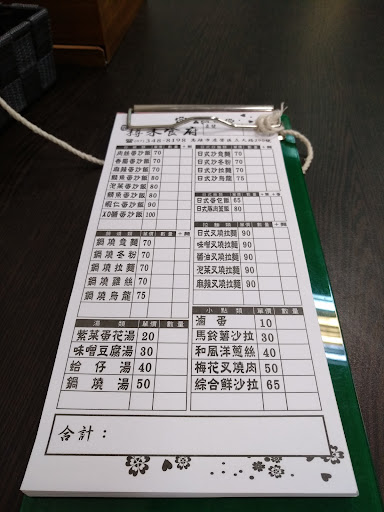 食府
肉絲蛋炒飯 70
香腸蛋炒飯 70
麻辣蛋炒飯 70
鮭魚蛋炒飯 80
泡菜蛋炒飯 80
鯖魚蛋炒飯 80
蝦仁蛋炒飯 90
XO醬蛋炒飯 100
鍋燒意麵 70
鍋燒冬粉 70
鍋燒拉麵 70
鍋燒雞絲 70
鍋燒烏龍 75
湯類 單價 數量
紫菜蛋花湯 20
味噌豆腐湯 30
蛤仔湯 40
鍋燒湯 50
日式炒意麵 70
日式炒冬粉 70
日式炒拉麵 70
日式炒烏龍 75
日式蛋包飯 65
日式豬肉蓋飯 80
拉麵類 單價 數量
日式叉燒拉麵 90
味噌叉燒拉麵 90
醬油叉燒拉麵 90
泡菜叉燒拉麵 90
麻辣叉燒拉麵 90
小點類 單價 數量
滷蛋 10
馬鈴薯沙拉 30
和風洋蔥絲 40
梅花叉燒肉 50
綜合鮮沙拉 65
合計：